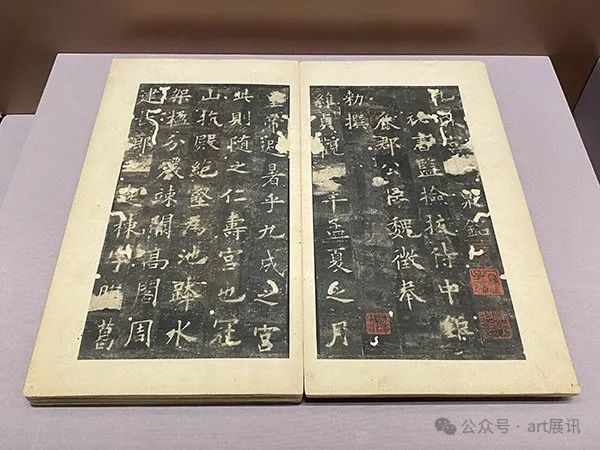 九 泉銘
秘書監撿挍侍中鉅
鹿郡公臣魏徵奉
勅撰
維貞觀 年孟夏之月
皇帝避暑乎九成之宮
此則隨之仁壽宮也冠
山抗殿絕壑為池跨水
架楹分巖竦闕高閣周
建 廊 起棟宇膠葛
公众号·art展讯